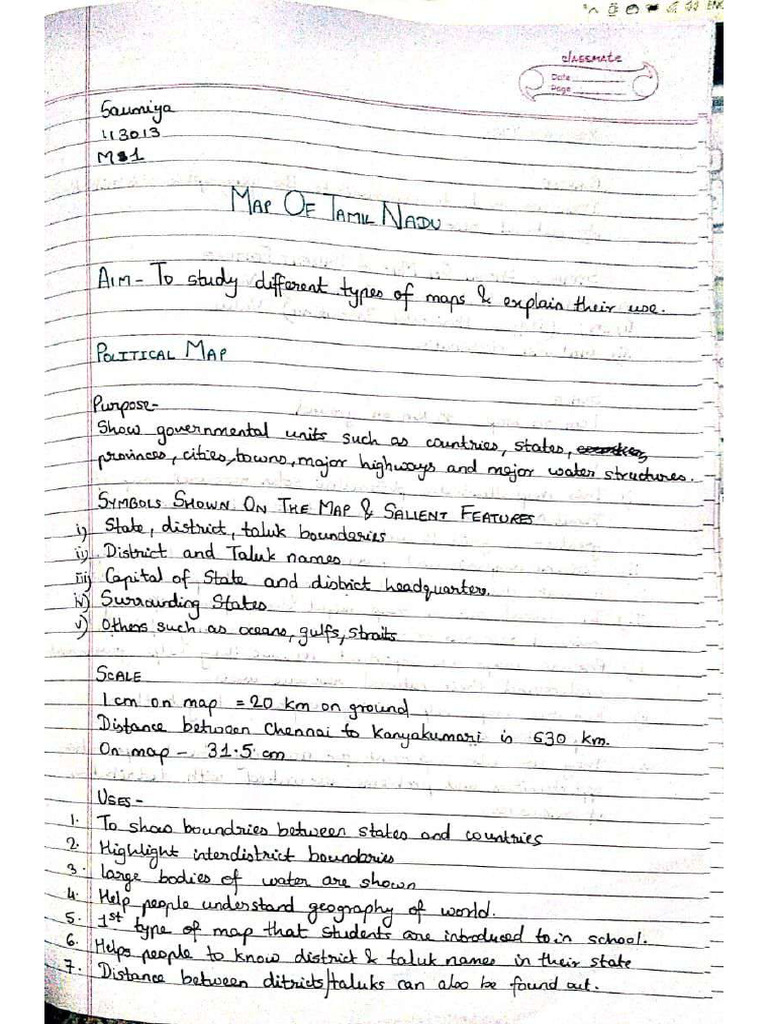 classmate
Date
Page
Saumiya
113013
MS1
MAP OF TAMIL NADU
AIM- To study different types of maps & explain their use.
POLITICAL MAP
Purpose-
Show governmental units such as countries, states,
provinces, cities, towns, major highways and major water structures.
SYMBOLS SHOWN ON THE MAP & SALIENT FEATURES
i) State, district, taluk boundaries
ii) District and Taluk names
iii) Capital of State and district headquarters.
iv) Surrounding States
v) Others such as oceans, gulfs, straits
SCALE
1 cm on map = 20 km on ground
Distance between Chennai to Kanyakumari is 630 km.
On map - 31.5 cm
USES-
1. To show boundries between states and countries
2. Highlight interdistrict boundaries
3. Large bodies of water are shown
4. Help people understand geography of world.
5. 1st type of map that students are introduced to in school.
6. Helps people to know district & taluk names in their state
7. Distance between ditricts/taluks can also be found out.